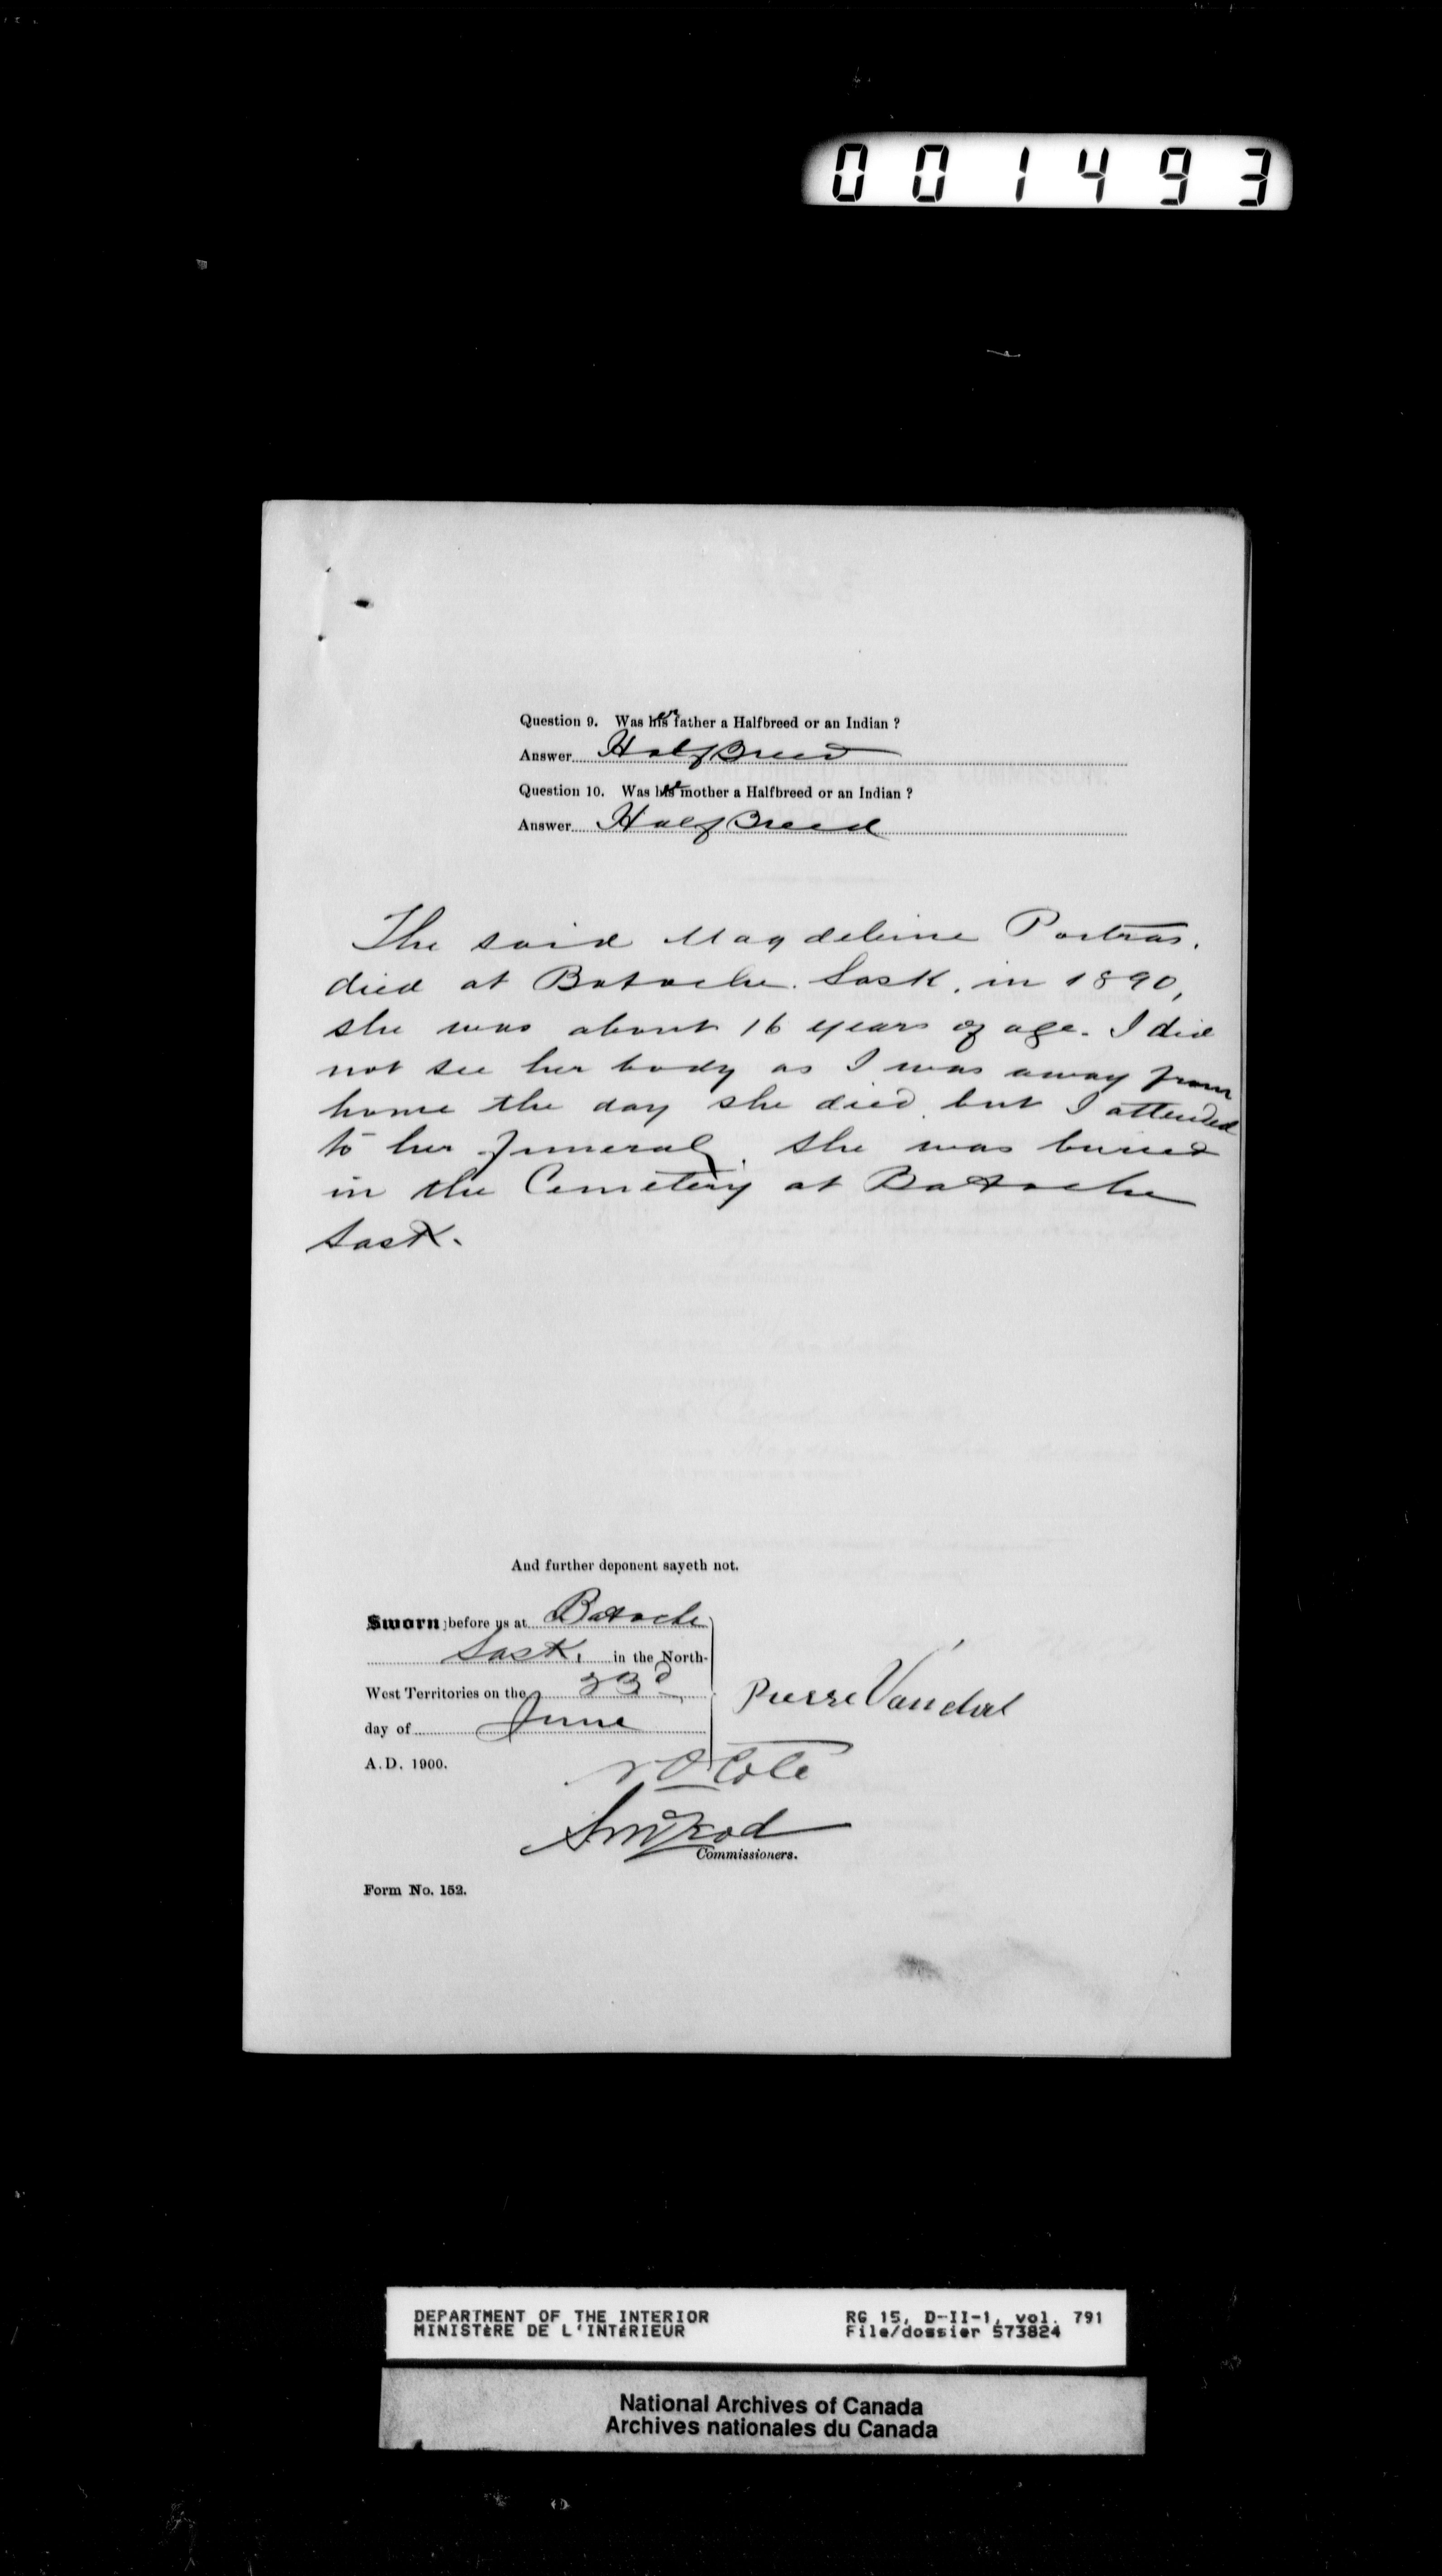 001493
Question 9. Was her father a Halfbreed or an Indian ?
Answer Half Breed
Question 10. Was her mother a Halfbreed or an Indian ?
Answer Half Breed
The said Magdeleine Poitras.
died at Batoche. Sask. in 1890,
she was about 16 years of age. I did
not see her body as I was away from
home the day she died, but I attended
to her funeral, she was buried
in the Cemetery at Batoche
Sask.
And further deponent sayeth not.
Sworn before us at Batoche
Sask, in the North-
West Territories on the 23d
day of June
A.D. 1900.
Pierre Vandal
Cote
Commissioners.
Form No. 152.
DEPARTMENT OF THE INTERIOR RG 15, D-II-1, vol. 791
MINISTÈRE DE L'INTÉRIEUR File/dossier 573824
National Archives of Canada
Archives nationales du Canada